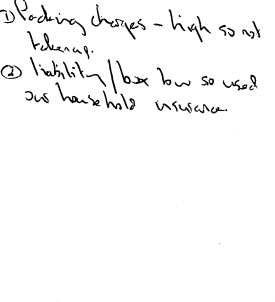 ① Packing charges – high so not
taken up.
② liability/box low so used
our household insurance